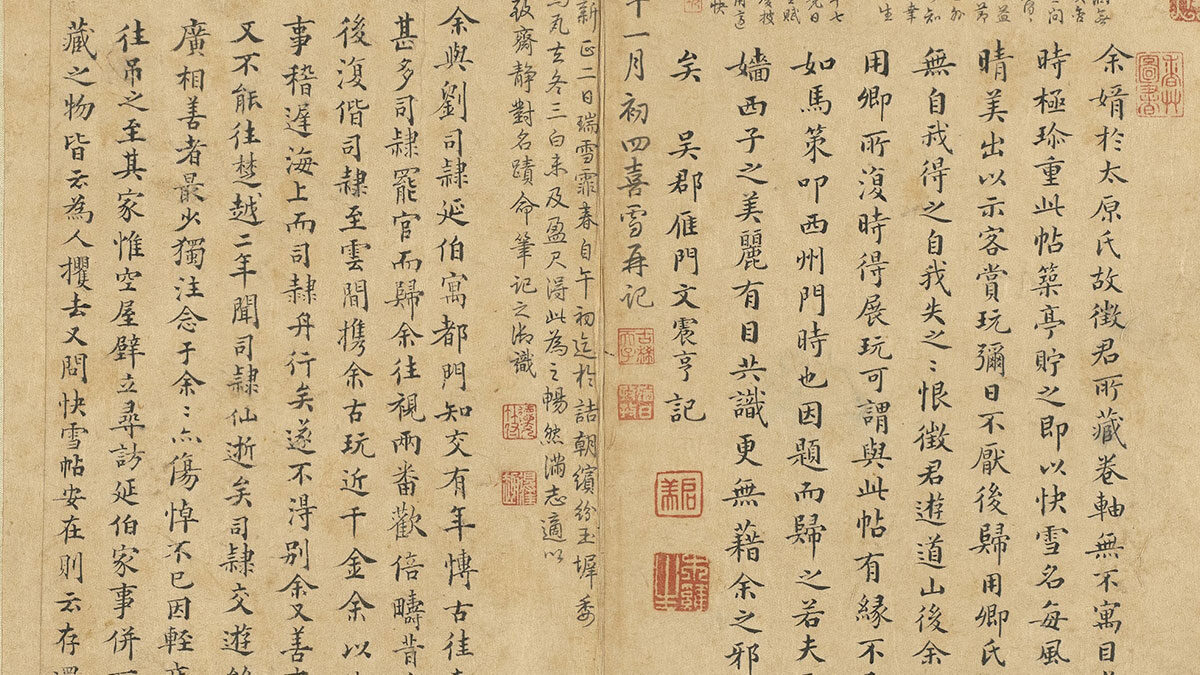 余婿於太原氏故徵君所藏卷軸無不寓目
時極珍重此帖築亭貯之即以快雪名每風
晴美出以示客賞玩彌日不厭後歸用卿氏
無自我得之自我失之〻恨徵君遊道山後余
用卿所復時得展玩可謂與此帖有緣不
如馬策叩西州門時也因題而歸之若夫
嬙西子之美麗有目共識更無藉余之邪
矣 吳郡雁門文震亨記
十一月初四喜雪再記
新正二日瑞雪霏春自午初迄於詰朝繽紛玉墀委
馬瓦去冬三白未及盈尺得此為之暢然滿志適以
致齋靜對名蹟命筆記之御識
余與劉司隸延伯寓都門知交有年愽古往
甚多司隸罷官而歸余往視兩番歡倍疇昔
後復偕司隸至雲間携余古玩近千金余以
事稽遲海上而司隸丹行矣遂不得別余又善
又不能往楚越二年聞司隸仙逝矣司隸交遊
廣相善者最少獨注念于余〻亦傷悼不已因輕
往吊之至其家惟空屋壁立尋訪延伯家事併
藏之物皆云為人攫去又問快雪帖安在則云存